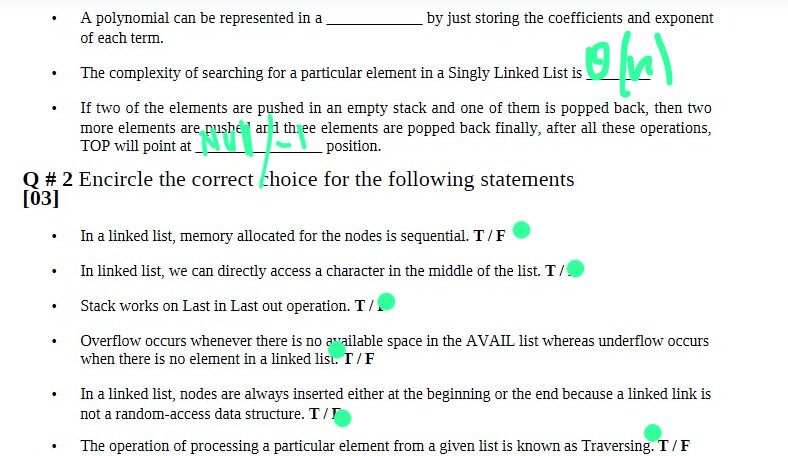 • A polynomial can be represented in a ____________ by just storing the coefficients and exponent
of each term.
• The complexity of searching for a particular element in a Singly Linked List is θ(n)
• If two of the elements are pushed in an empty stack and one of them is popped back, then two
more elements are pushed and three elements are popped back finally, after all these operations,
TOP will point at NUll/-1 position.
Q # 2 Encircle the correct choice for the following statements
[03]
• In a linked list, memory allocated for the nodes is sequential. T / F
• In linked list, we can directly access a character in the middle of the list. T /
• Stack works on Last in Last out operation. T /
• Overflow occurs whenever there is no available space in the AVAIL list whereas underflow occurs
when there is no element in a linked list. T / F
• In a linked list, nodes are always inserted either at the beginning or the end because a linked link is
not a random-access data structure. T / F
• The operation of processing a particular element from a given list is known as Traversing. T / F